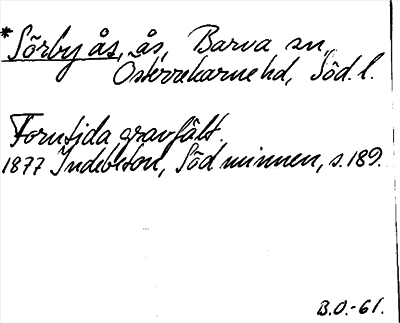 *Sörby ås, ås, Barva sn,
Österrekarne hd, Söd. l.
Forntida gravfält.
1877 Indebetou, Söd minnen, s. 189.
B.O.-61.